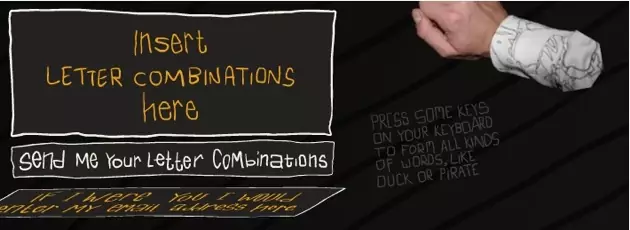 Insert
LETTER COMBINATIONS
here
Send Me Your Letter Combinations
IF I WERE YOU I WOULD
enter MY email address here
PRESS SOME KEYS
ON YOUR KEYBOARD
TO FORM ALL KINDS
OF WORDS, LIKE
DUCK OR PIRATE